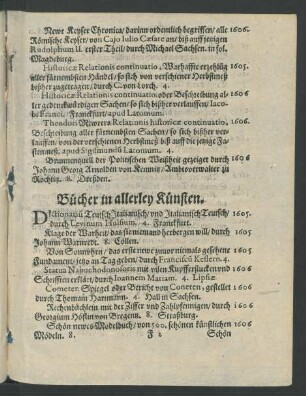 Newe Keyser Chronica/ darinn ordentlich begriffen/ alle 1606.
Römische Keyser/ von Cajo Iulio Cæsare an/ biß auff jetzigen
Rudolphum II. erster Theil/ durch Michael Sachsen. in fol.
Magdeburg.
Historicæ Relationis continuatio, Warhaffte erzehlūg 1605.
aller fürnembsten Händel/ so sich von verschienener Herbstmeß
bißher zugetragen/ durch C. von Lorch. 4.
Historicæ Relationis continuatio oder Beschreibung al- 1606
ler gedenckwürdigen Sachen/ so sich bißher verlauffen/ Iaco-
bi Francj. Franckfurt/ apud Latomum.
Theodori Meureri Relationis historicæ continuatio, 1606.
Beschreibung aller fürnembsten Sachen/ so sich bißher ver-
lauffen/ von der verschienen Herbstmeß biß auff die jetzige Fa-
stenmeß. apud Sigismundū Latomum. 4.
Brunnenquell der Politischen Weißheit gezeiget durch 1606
Johann Georg Arnolden von Kemniz/ Ambtsverwalter zu
Rochlitz. 8. Dreßden.
Bücher in allerley Künsten.
Dictionariū Teutsch Italianisch/ vnd Italianisch Teutsch/ 1605.
durch Levinum Hulsium. 4. Franckfurt.
Klage der Warheit/ das sie niemandt herbergen will/ durch 1605
Johann Warnede. 8. Cöllen.
Von Sonnvhren/ das erste newe zuvor niemals gesehene 1605
Fundament/ jetzt an Tag geben/ durch Franciscū Keslern. 4.
Statua Nabuchodonosoris mit vilen Kupfferstucken vnd 1606
Schrifften erklärt/ durch Ioannem Mariam. 4. Lipsiæ.
Cometen Spiegel oder Bericht von Cometen/ gestellet 1606
durch Thomam Hartmann. 4. Hall in Sachsen.
Rechenbüchlein mit der Ziffer vnd Zahlpfennigen/ durch 1606
Georgium Höflin von Bregenn. 8. Straßburg.
Schön newes Modelbuch/ von 500. schönen künstlichen 1606
Mödeln. 8. F 2 Schön